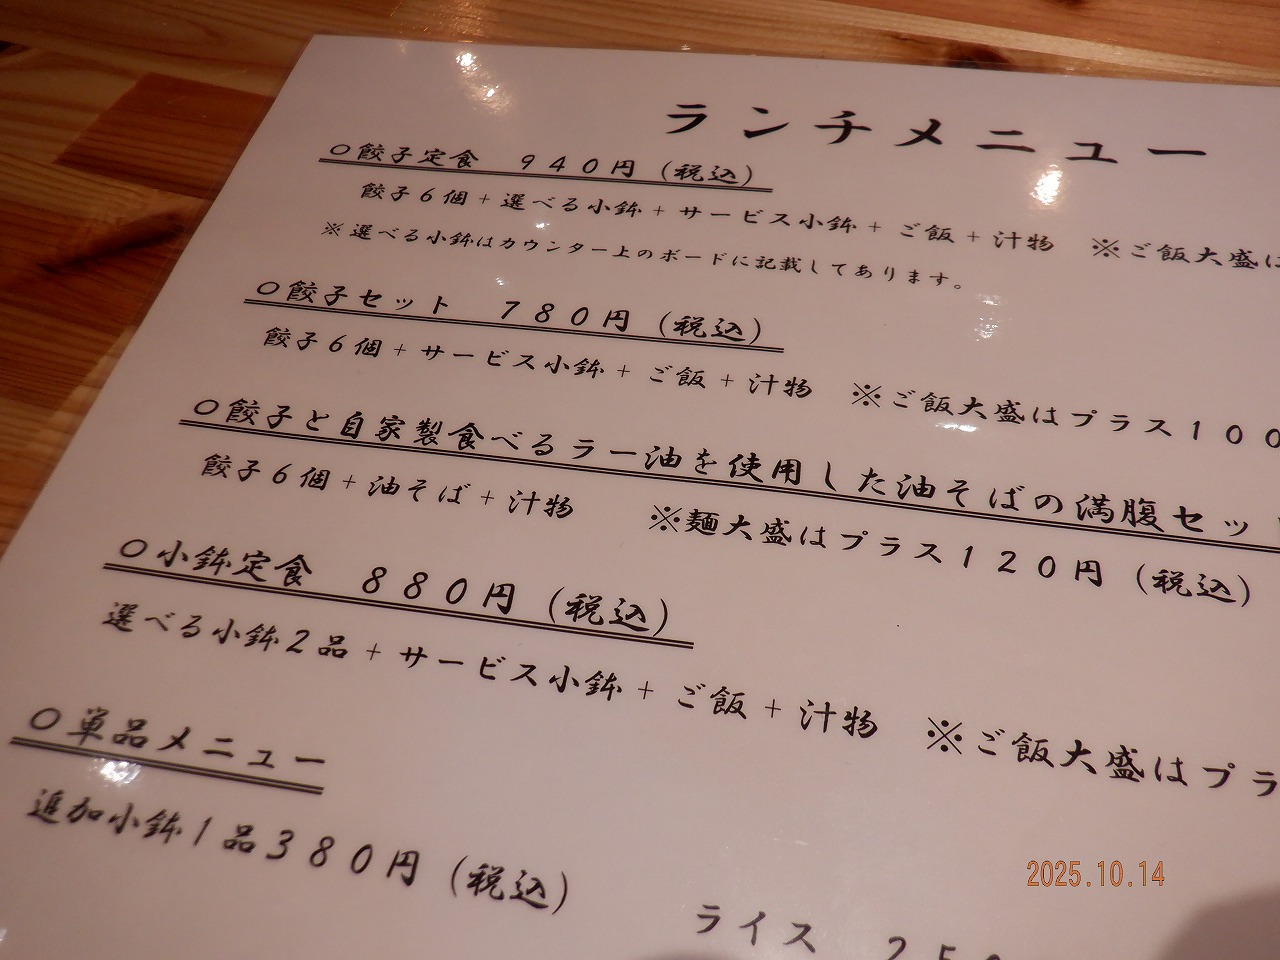 ランチメニュー
○餃子定食　９４０円（税込）
餃子６個＋選べる小鉢＋サービス小鉢＋ご飯＋汁物　※ご飯大盛は
※選べる小鉢はカウンター上のボードに記載してあります。
○餃子セット　７８０円（税込）
餃子６個＋サービス小鉢＋ご飯＋汁物　※ご飯大盛はプラス１００
○餃子と自家製食べるラー油を使用した油そばの満腹セッ
餃子６個＋油そば＋汁物　　※麺大盛はプラス１２０円（税込）
○小鉢定食　８８０円（税込）
選べる小鉢２品＋サービス小鉢＋ご飯＋汁物　※ご飯大盛はプラ
○単品メニュー
追加小鉢１品３８０円（税込）
ライス　２５０
2025.10.14